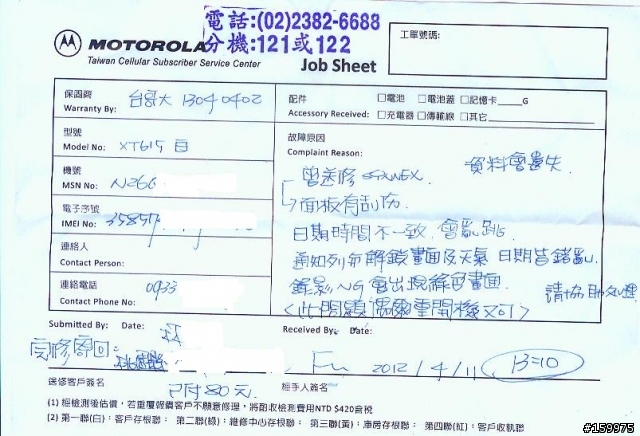 電話:(02)2382-6688
分機:121或122
MOTOROLA
Taiwan Cellular Subscriber Service Center
Job Sheet
工單號碼:
保固商
Warranty By: 台哥大 13040402
配件 □電池 □電池蓋 □記憶卡____G
Accessory Received: □充電器 □傳輸線 □其它
型號
Model No: XT615 白
故障原因
Complaint Reason:
資料會遺失
曾送修
面板有刮伤
機號
MSN No: N266
電子序號
IMEI No: 35851
日期時間不一致 會亂跳
通知列和解鎖畫面及天氣 日期皆錯亂
錄影NG 會出現綠色畫面
請協助處理
<此問題偶爾重開機又可>
連絡人
Contact Person:
連絡電話
Contact Phone No: 0933
Submitted By: Date:
Received By: Date:
完修寄回
Fu 2012/4/11 13=10
送修客戶簽名
已付80元
經手人簽名
(1) 經檢測後估價，若重覆報價客戶不願意修理，將酌收檢測費用NTD $420含稅
(2) 第一聯(白)：客戶存根聯 第二聯(綠)：維修中心存根聯 第三聯(黃)：庫房存根聯 第四聯(紅)：客戶收執聯
#159975